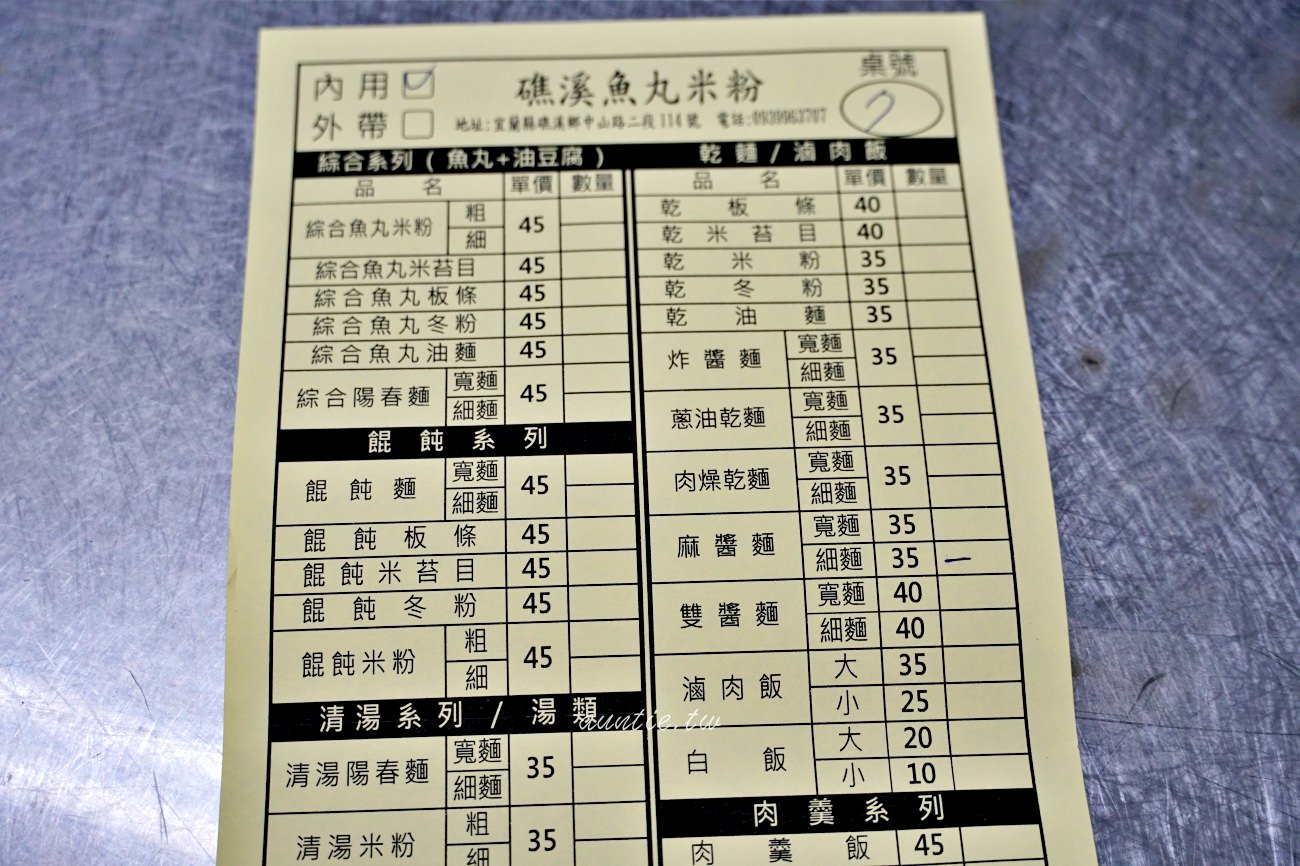 內用
外帶
礁溪魚丸米粉
地址:宜蘭縣礁溪鄉中山路二段114號 電話:0939963707
桌號
7
綜合系列(魚丸+油豆腐)
品名 單價 數量
綜合魚丸米粉 粗 細 45
綜合魚丸米苔目 45
綜合魚丸板條 45
綜合魚丸冬粉 45
綜合魚丸油麵 45
綜合陽春麵 寬麵 細麵 45
餛飩系列
餛飩麵 寬麵 細麵 45
餛飩板條 45
餛飩米苔目 45
餛飩冬粉 45
餛飩米粉 粗 細 45
清湯系列/湯類
清湯陽春麵 寬麵 細麵 35
清湯米粉 粗 細 35
乾麵/滷肉飯
品名 單價 數量
乾板條 40
乾米苔目 40
乾米粉 35
乾冬粉 35
乾油麵 35
炸醬麵 寬麵 細麵 35
蔥油乾麵 寬麵 細麵 35
肉燥乾麵 寬麵 細麵 35
麻醬麵 寬麵 35
細麵 35 一
雙醬麵 寬麵 40
細麵 40
滷肉飯 大 35
小 25
白飯 大 20
小 10
肉羹系列
肉羹飯 45
auntie.tw